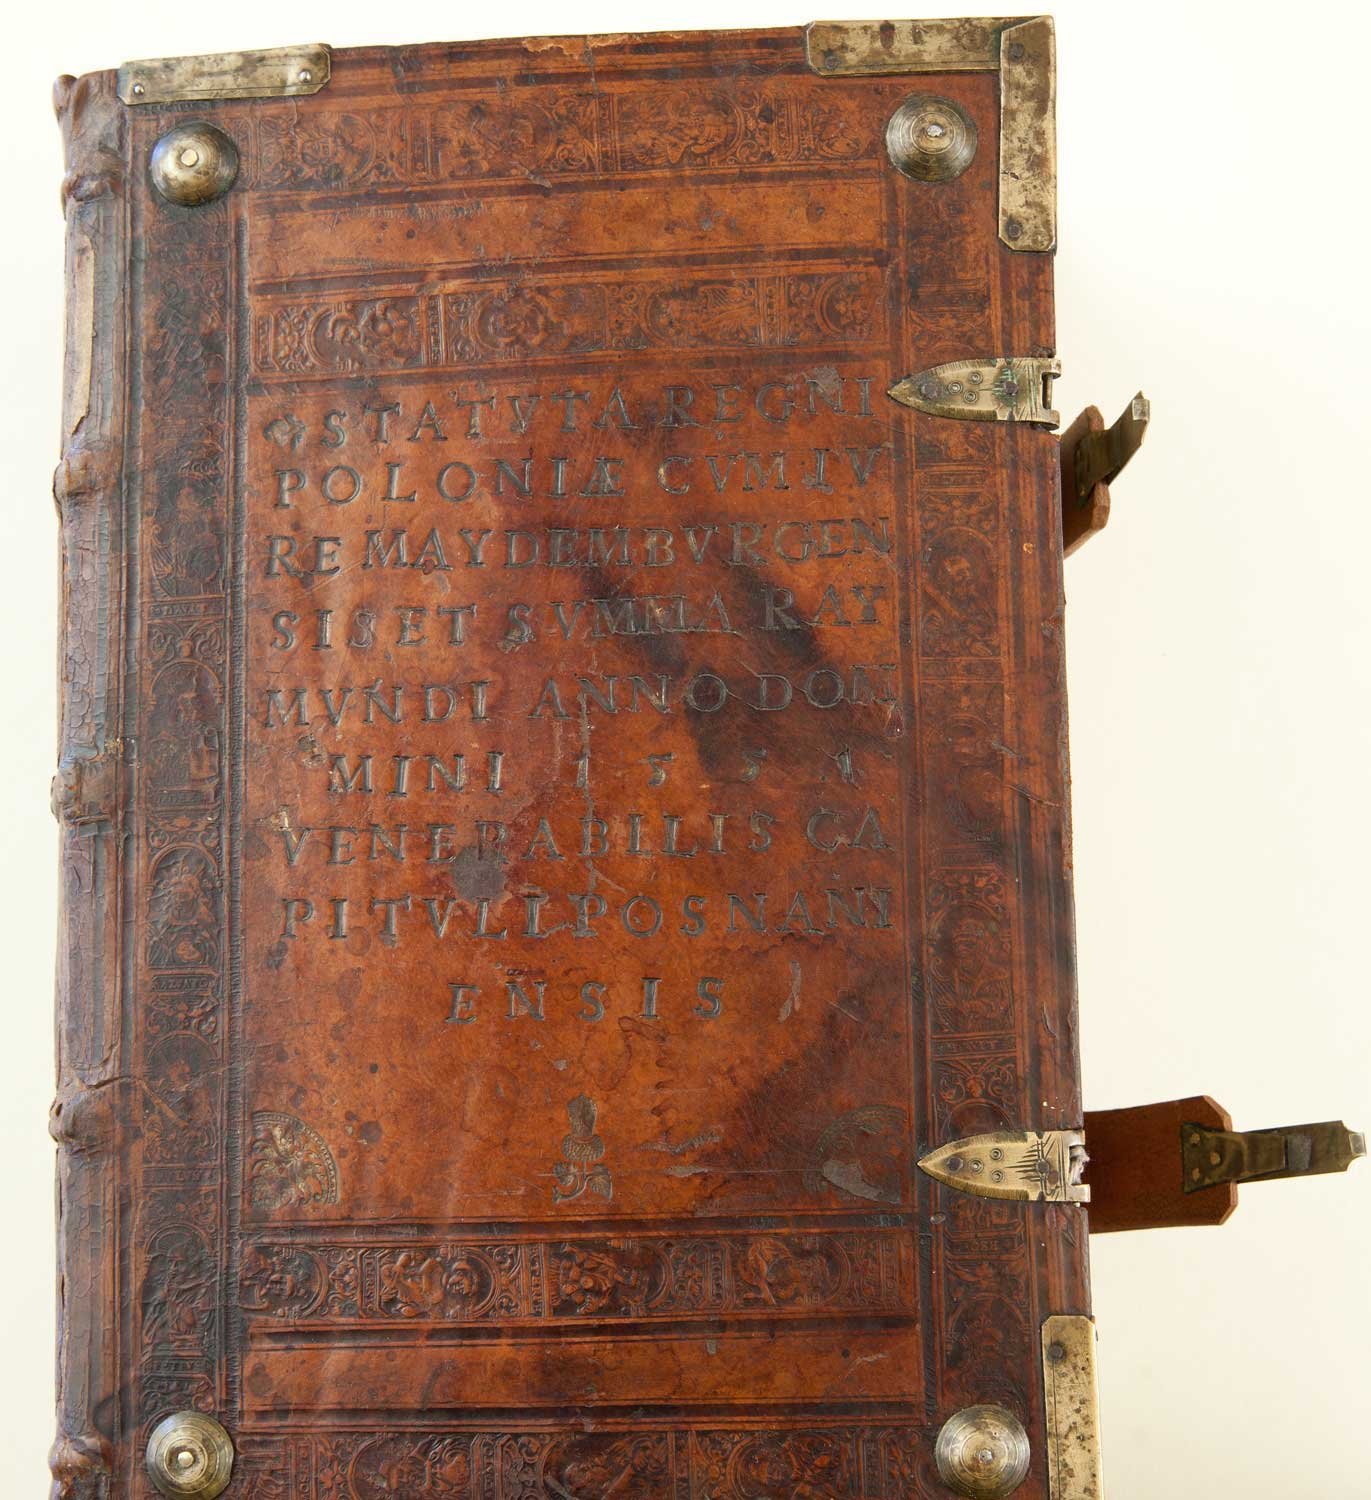 STATVTA REGNI
POLONIÆ CVM IV
RE MAYDEMBVRGEN
SIS ET SVMMA RAY
MVNDI ANNO DOM
MINI 1551
VENERABILIS CA
PITVLI POSNANI
ENSIS